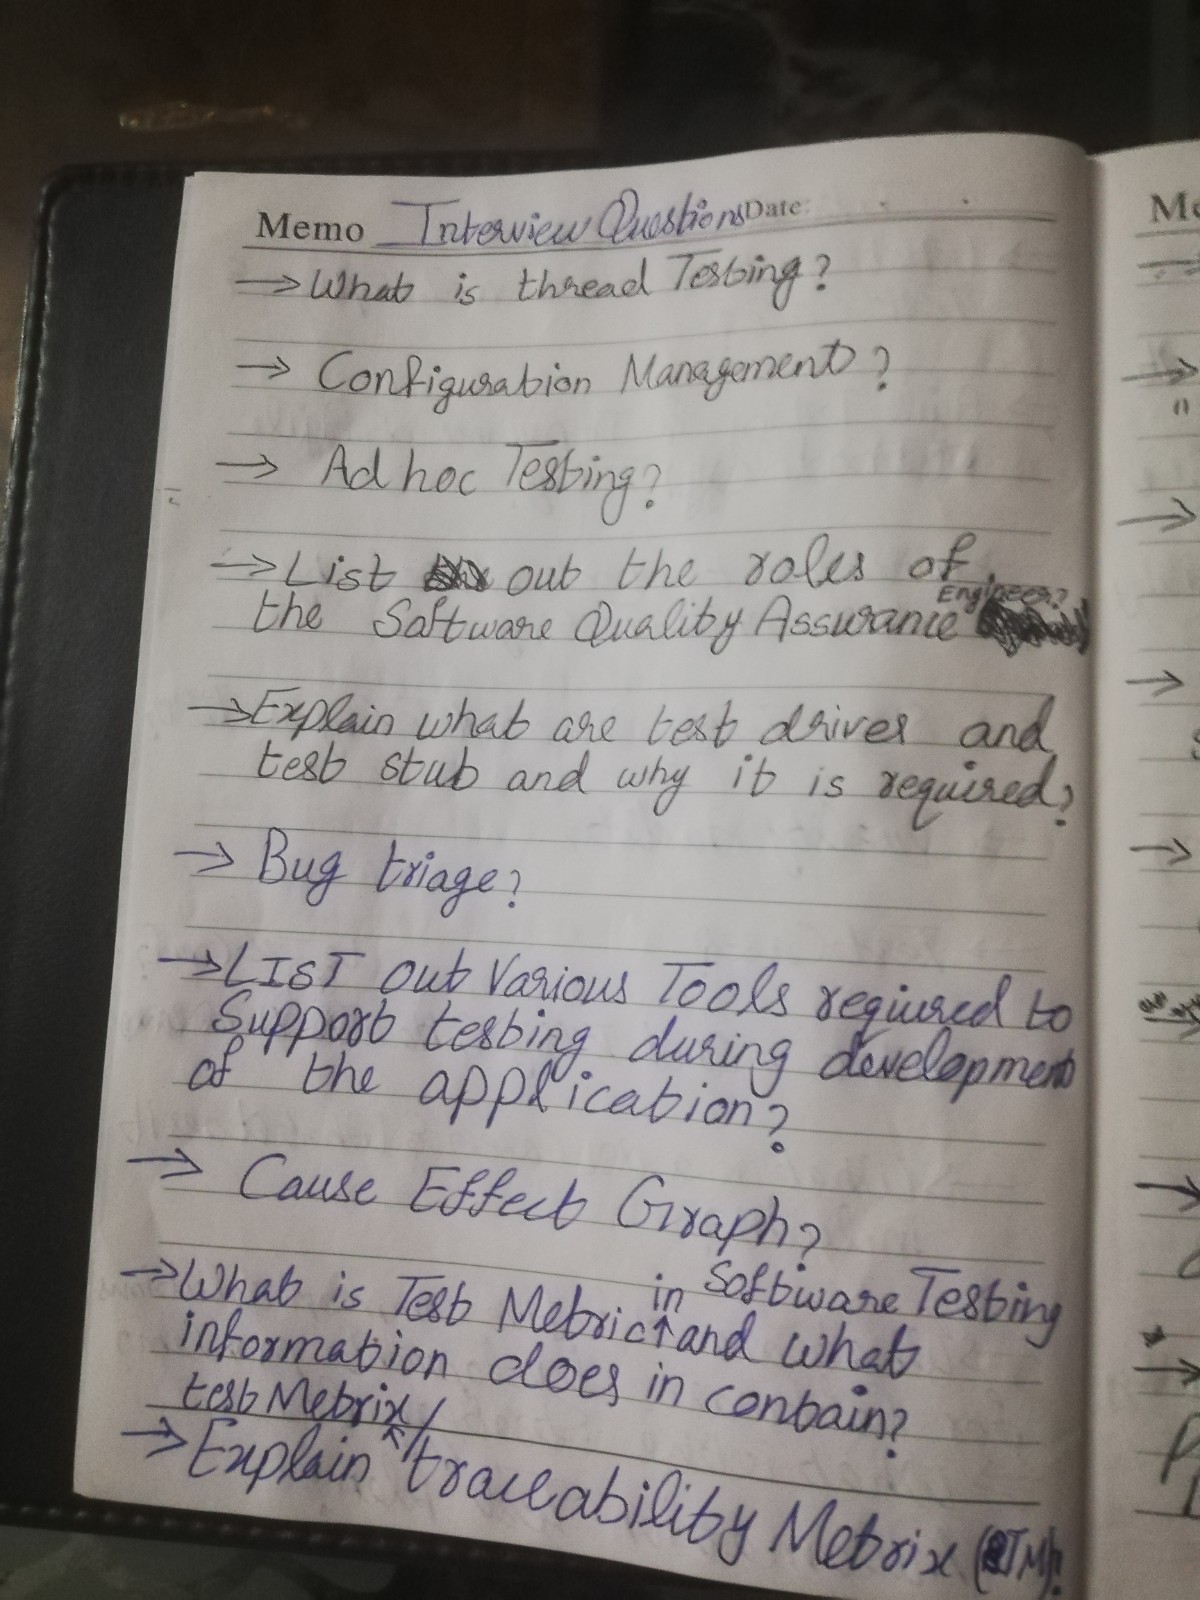 Memo Interview Questions Date:
→ What is thread Testing?
→ Configuration Management?
→ Ad hoc Testing?
→ List out the roles of
the Software Quality Assurance Engineer?
→ Explain what are test driver and
test stub and why it is required?
→ Bug triage?
→ LIST out Various Tools reqiured to
Support testing during development
of the application?
→ Cause Effect Graph?
→ What is Test Metric ↑ in Software Testing
and what
information does in contain?
test Metrix /
→ Explain traceability Metrix (RTM)?
Me